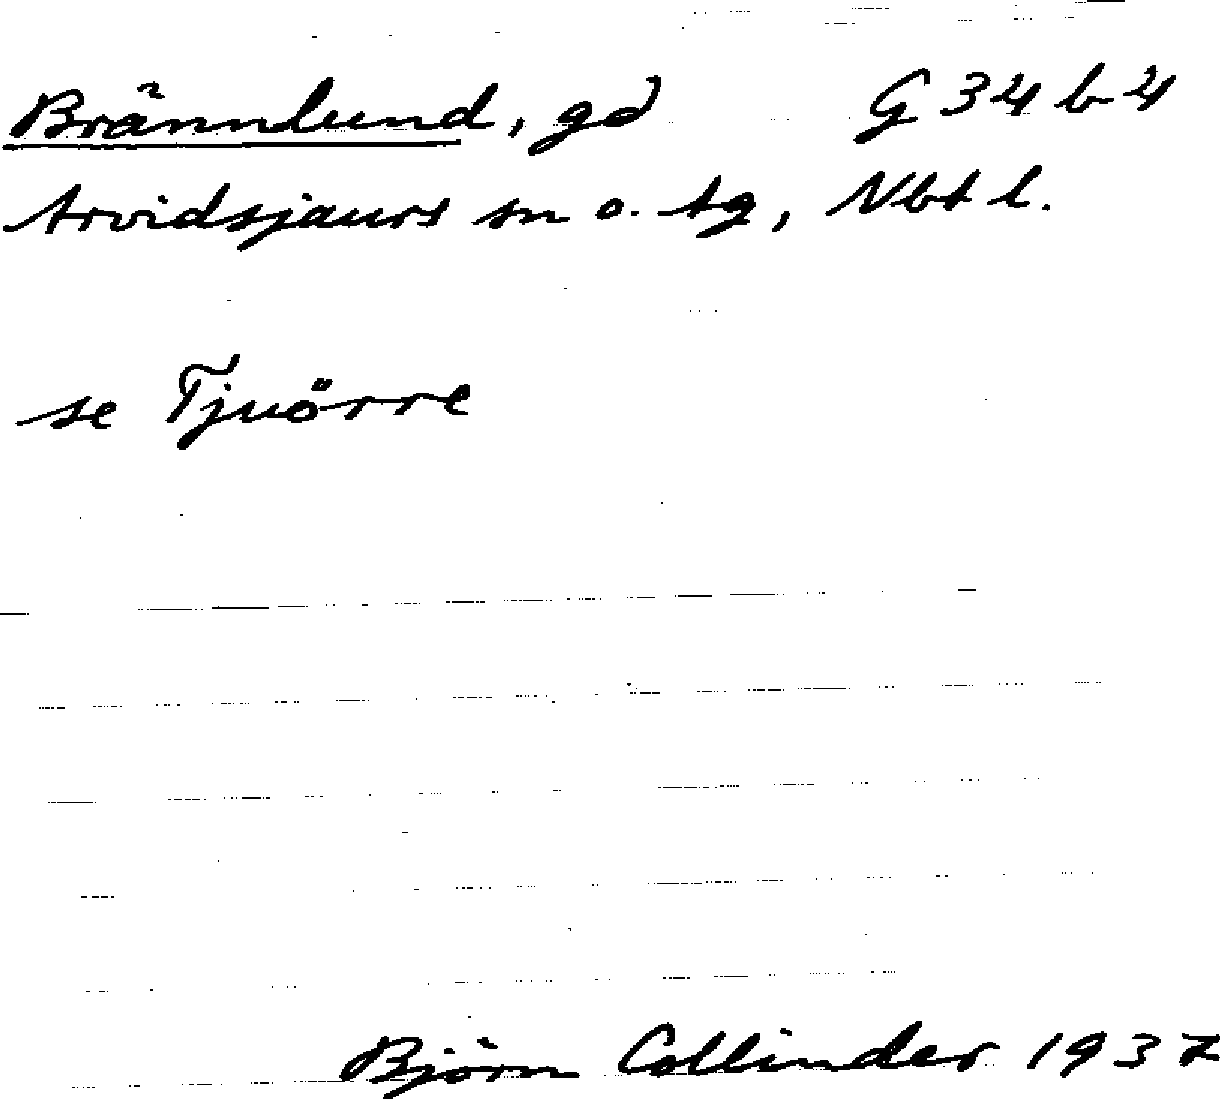 Brännlund, gd G 34 b 4
Arvidsjaurs sn o. tg, Nbt l.
se Tjuörre
Björn Collinder 1937